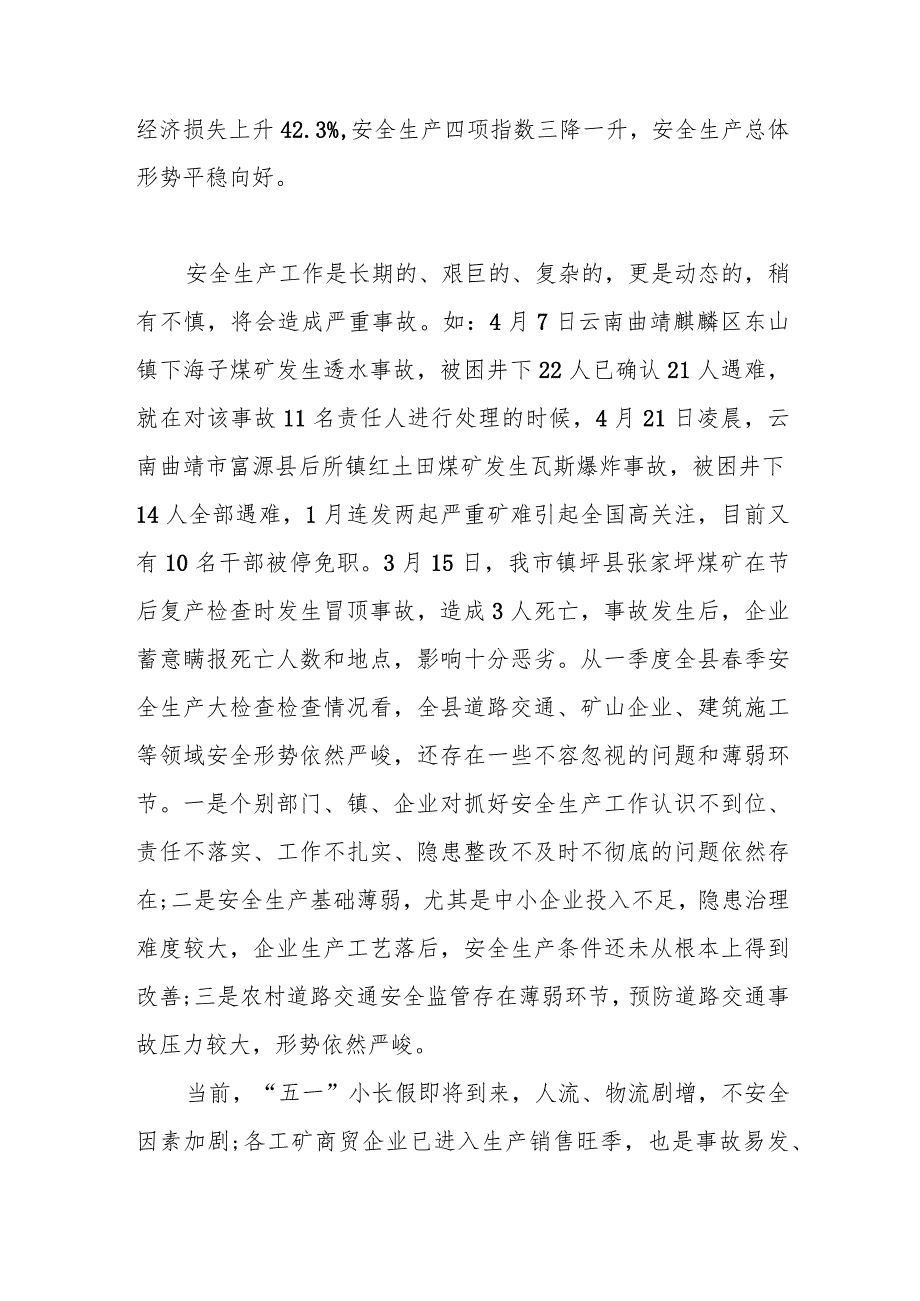 经济损失上升42.3%,安全生产四项指数三降一升，安全生产总体
形势平稳向好。
安全生产工作是长期的、艰巨的、复杂的，更是动态的，稍
有不慎，将会造成严重事故。如：4月7日云南曲靖麒麟区东山
镇下海子煤矿发生透水事故，被困井下22人已确认21人遇难，
就在对该事故11名责任人进行处理的时候，4月21日凌晨，云
南曲靖市富源县后所镇红土田煤矿发生瓦斯爆炸事故，被困井下
14人全部遇难，1月连发两起严重矿难引起全国高关注，目前又
有10名干部被停免职。3月15日，我市镇坪县张家坪煤矿在节
后复产检查时发生冒顶事故，造成3人死亡，事故发生后，企业
蓄意瞒报死亡人数和地点，影响十分恶劣。从一季度全县春季安
全生产大检查检查情况看，全县道路交通、矿山企业、建筑施工
等领域安全形势依然严峻，还存在一些不容忽视的问题和薄弱环
节。一是个别部门、镇、企业对抓好安全生产工作认识不到位、
责任不落实、工作不扎实、隐患整改不及时不彻底的问题依然存
在;二是安全生产基础薄弱，尤其是中小企业投入不足，隐患治理
难度较大，企业生产工艺落后，安全生产条件还未从根本上得到
改善;三是农村道路交通安全监管存在薄弱环节，预防道路交通事
故压力较大，形势依然严峻。
当前，“五一”小长假即将到来，人流、物流剧增，不安全
因素加剧;各工矿商贸企业已进入生产销售旺季，也是事故易发、